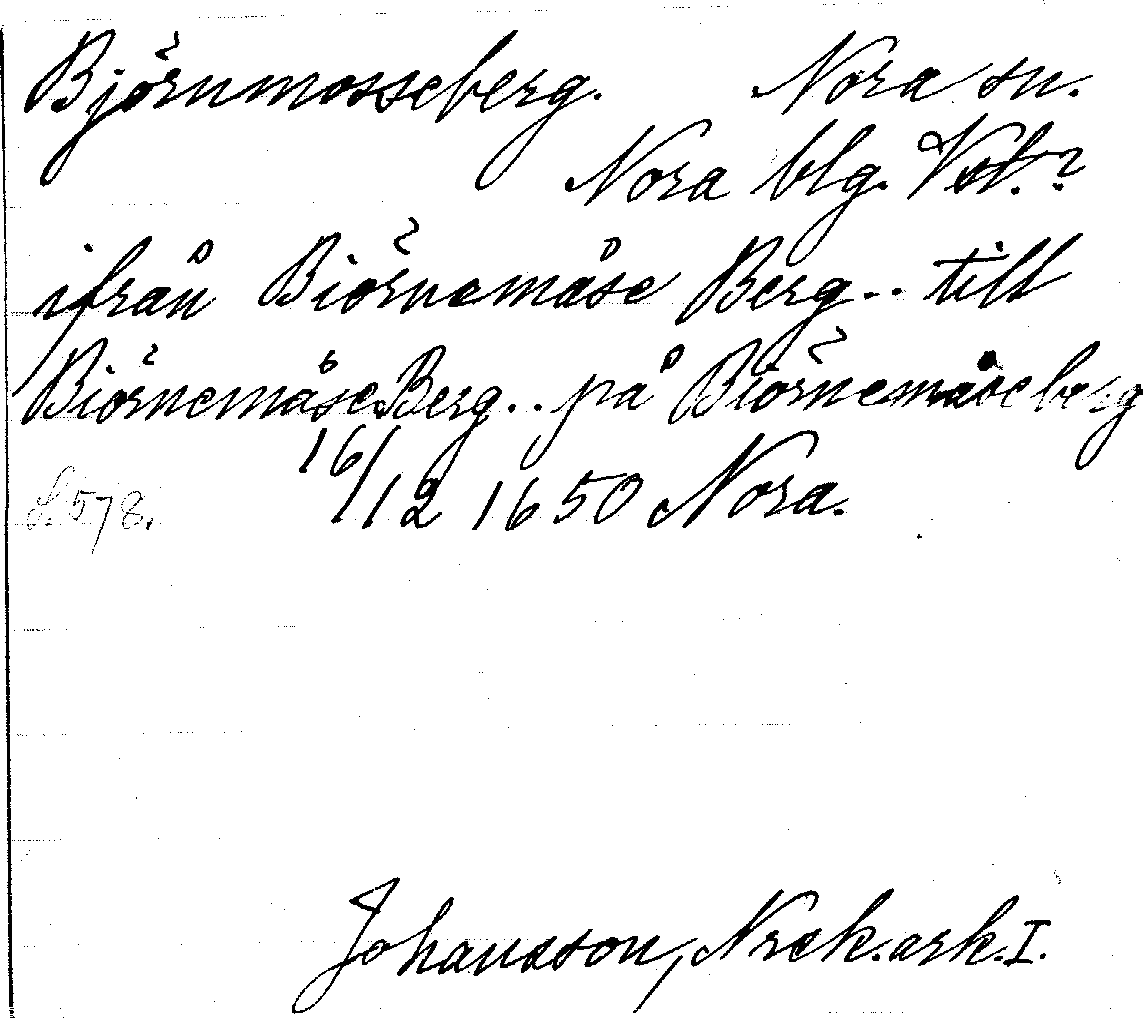 Björnmosseberg. Nora sn.
Nora blg. Vstl.?
ifrån Biörnemåse Berg.. till
BiörnemåseBerg.. på Biörnemåseberg
16/12 1650 Nora.
s. 578.
Johansson, Nrek. ark. I.